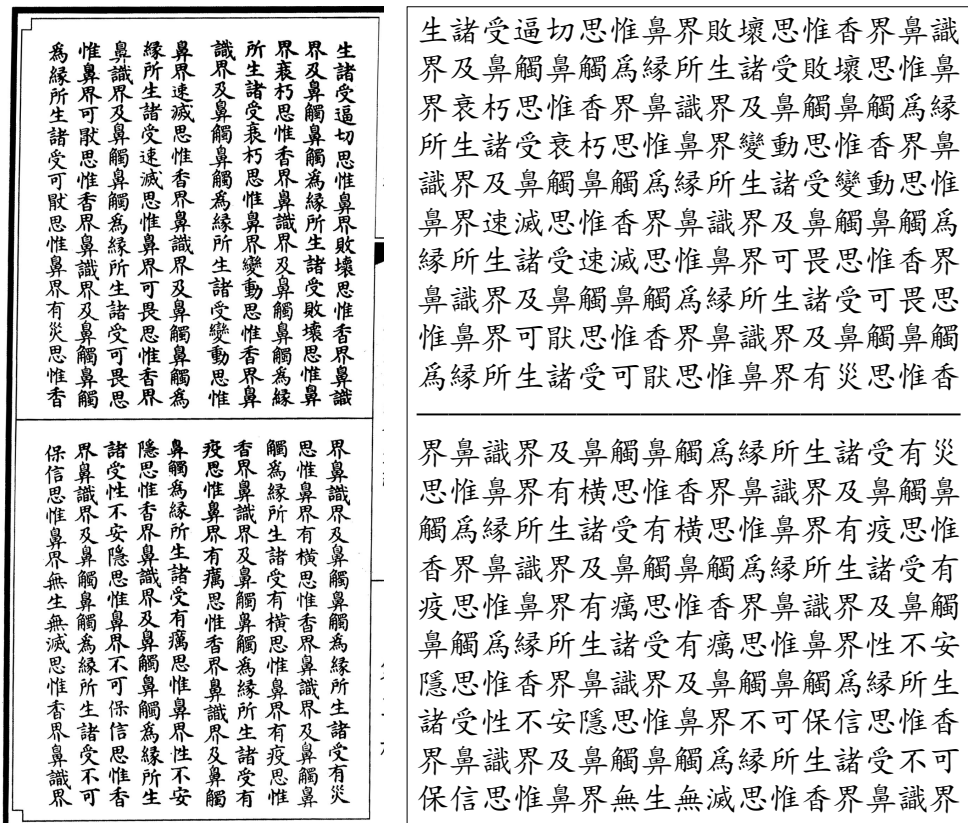 生諸受逼切思惟鼻界敗壞思惟香界鼻識
界及鼻觸鼻觸爲縁所生諸受敗壞思惟鼻
界衰朽思惟香界鼻識界及鼻觸鼻觸爲縁
所生諸受衰朽思惟鼻界變動思惟香界鼻
識界及鼻觸鼻觸爲縁所生諸受變動思惟
鼻界速滅思惟香界鼻識界及鼻觸鼻觸爲
縁所生諸受速滅思惟鼻界可畏思惟香界
鼻識界及鼻觸鼻觸爲縁所生諸受可畏思
惟鼻界可猒思惟香界鼻識界及鼻觸鼻觸
爲縁所生諸受可猒思惟鼻界有災思惟香
界鼻識界及鼻觸鼻觸爲縁所生諸受有災
思惟鼻界有橫思惟香界鼻識界及鼻觸鼻
觸爲縁所生諸受有橫思惟鼻界有疫思惟
香界鼻識界及鼻觸鼻觸爲縁所生諸受有
疫思惟鼻界有癘思惟香界鼻識界及鼻觸
鼻觸爲縁所生諸受有癘思惟鼻界性不安
隱思惟香界鼻識界及鼻觸鼻觸爲縁所生
諸受性不安隱思惟鼻界不可保信思惟香
界鼻識界及鼻觸鼻觸爲縁所生諸受不可
保信思惟鼻界無生無滅思惟香界鼻識界
生諸受逼切思惟鼻界敗壞思惟香界鼻識
界及鼻觸鼻觸爲縁所生諸受敗壞思惟鼻
界衰朽思惟香界鼻識界及鼻觸鼻觸爲縁
所生諸受衰朽思惟鼻界變動思惟香界鼻
識界及鼻觸鼻觸爲縁所生諸受變動思惟
鼻界速滅思惟香界鼻識界及鼻觸鼻觸爲
縁所生諸受速滅思惟鼻界可畏思惟香界
鼻識界及鼻觸鼻觸爲縁所生諸受可畏思
惟鼻界可猒思惟香界鼻識界及鼻觸鼻觸
爲縁所生諸受可猒思惟鼻界有災思惟香
界鼻識界及鼻觸鼻觸爲縁所生諸受有災
思惟鼻界有橫思惟香界鼻識界及鼻觸鼻
觸爲縁所生諸受有橫思惟鼻界有疫思惟
香界鼻識界及鼻觸鼻觸爲縁所生諸受有
疫思惟鼻界有癘思惟香界鼻識界及鼻觸
鼻觸爲縁所生諸受有癘思惟鼻界性不安
隱思惟香界鼻識界及鼻觸鼻觸爲縁所生
諸受性不安隱思惟鼻界不可保信思惟香
界鼻識界及鼻觸鼻觸爲縁所生諸受不可
保信思惟鼻界無生無滅思惟香界鼻識界